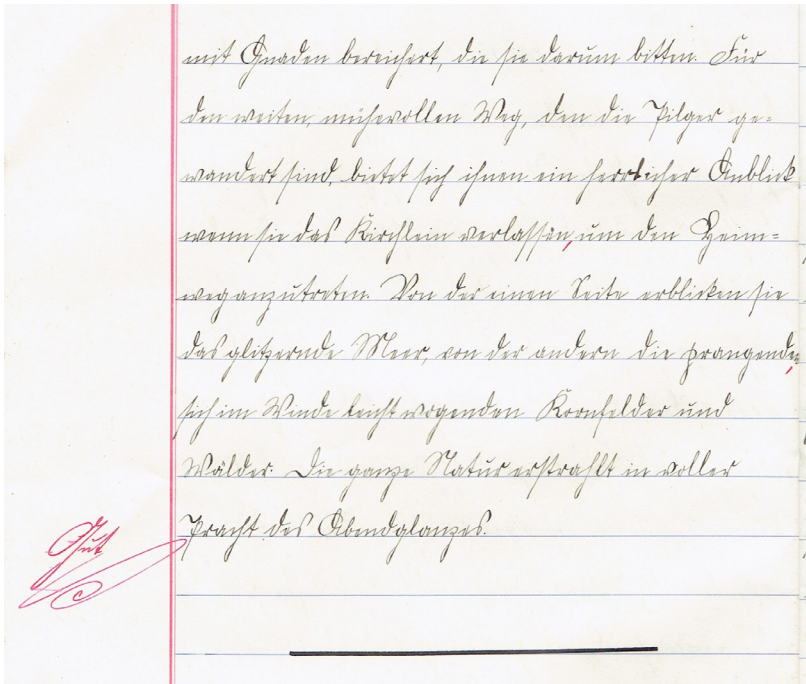 mit Gnaden bereichert, die sie darum bitten. Für
den weiten, mühevollen Weg, den die Pilger ge=
wandert sind, bietet sich ihnen ein herrlicher Anblick
wenn sie das Kirchlein verlassen, um den Heim=
weg anzutreten. Von der einen Seite erblicken sie
das glitzernde Meer, von der andern die prangenden,
sich im Winde leicht wogenden Kornfelder und
Wälder. Die ganze Natur erstrahlt in voller
Pracht des Abendglanzes.
Gut